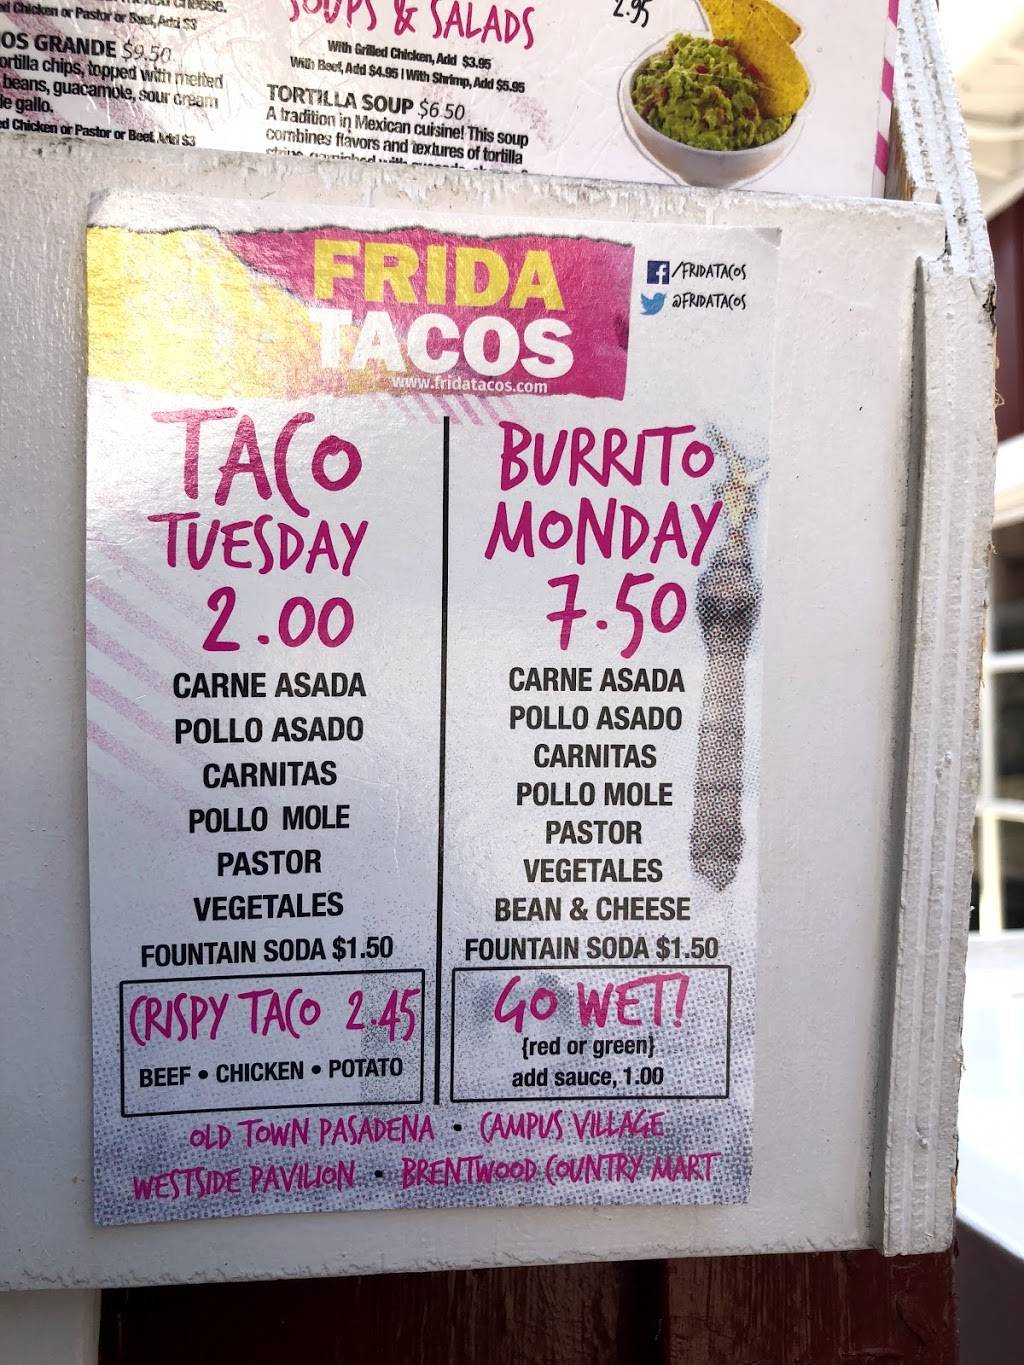 Chicken or Pastor or Beef, Add $3
OS GRANDE $9.50
ortilla chips, topped with melted
beans, guacamole, sour cream
de gallo.
ed Chicken or Pastor or Beef, Add $3
SOUPS & SALADS
With Grilled Chicken, Add $3.95
With Beef, Add $4.95 | With Shrimp, Add $5.95
TORTILLA SOUP $6.50
A tradition in Mexican cuisine! This soup
combines flavors and textures of tortilla
2.95
FRIDA
TACOS
www.fridatacos.com
/FRIDATACOS
@FRIDATACOS
TACO
TUESDAY
2.00
CARNE ASADA
POLLO ASADO
CARNITAS
POLLO MOLE
PASTOR
VEGETALES
FOUNTAIN SODA $1.50
CRISPY TACO 2.45
BEEF • CHICKEN • POTATO
BURRITO
MONDAY
7.50
CARNE ASADA
POLLO ASADO
CARNITAS
POLLO MOLE
PASTOR
VEGETALES
BEAN & CHEESE
FOUNTAIN SODA $1.50
GO WET!
{red or green}
add sauce, 1.00
OLD TOWN PASADENA • CAMPUS VILLAGE
WESTSIDE PAVILION • BRENTWOOD COUNTRY MART